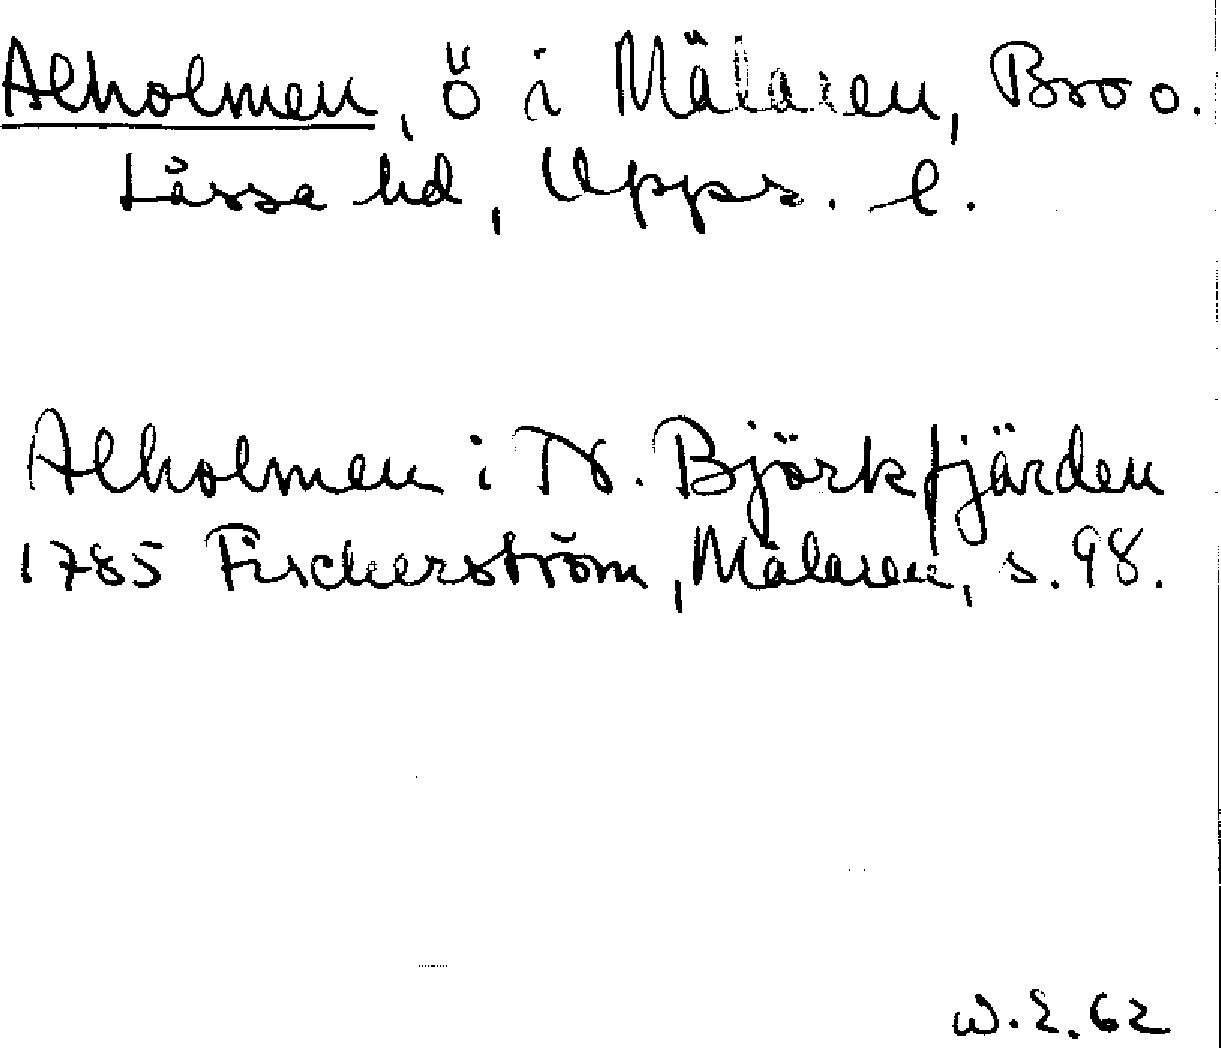 Alholmen, ö i Mälaren, Bro o.
Låssa hd, Upps. l.
Alholmen i N. Björkfjärden
1785 Fischerström, Mälaren, s. 98.
W. E. 62